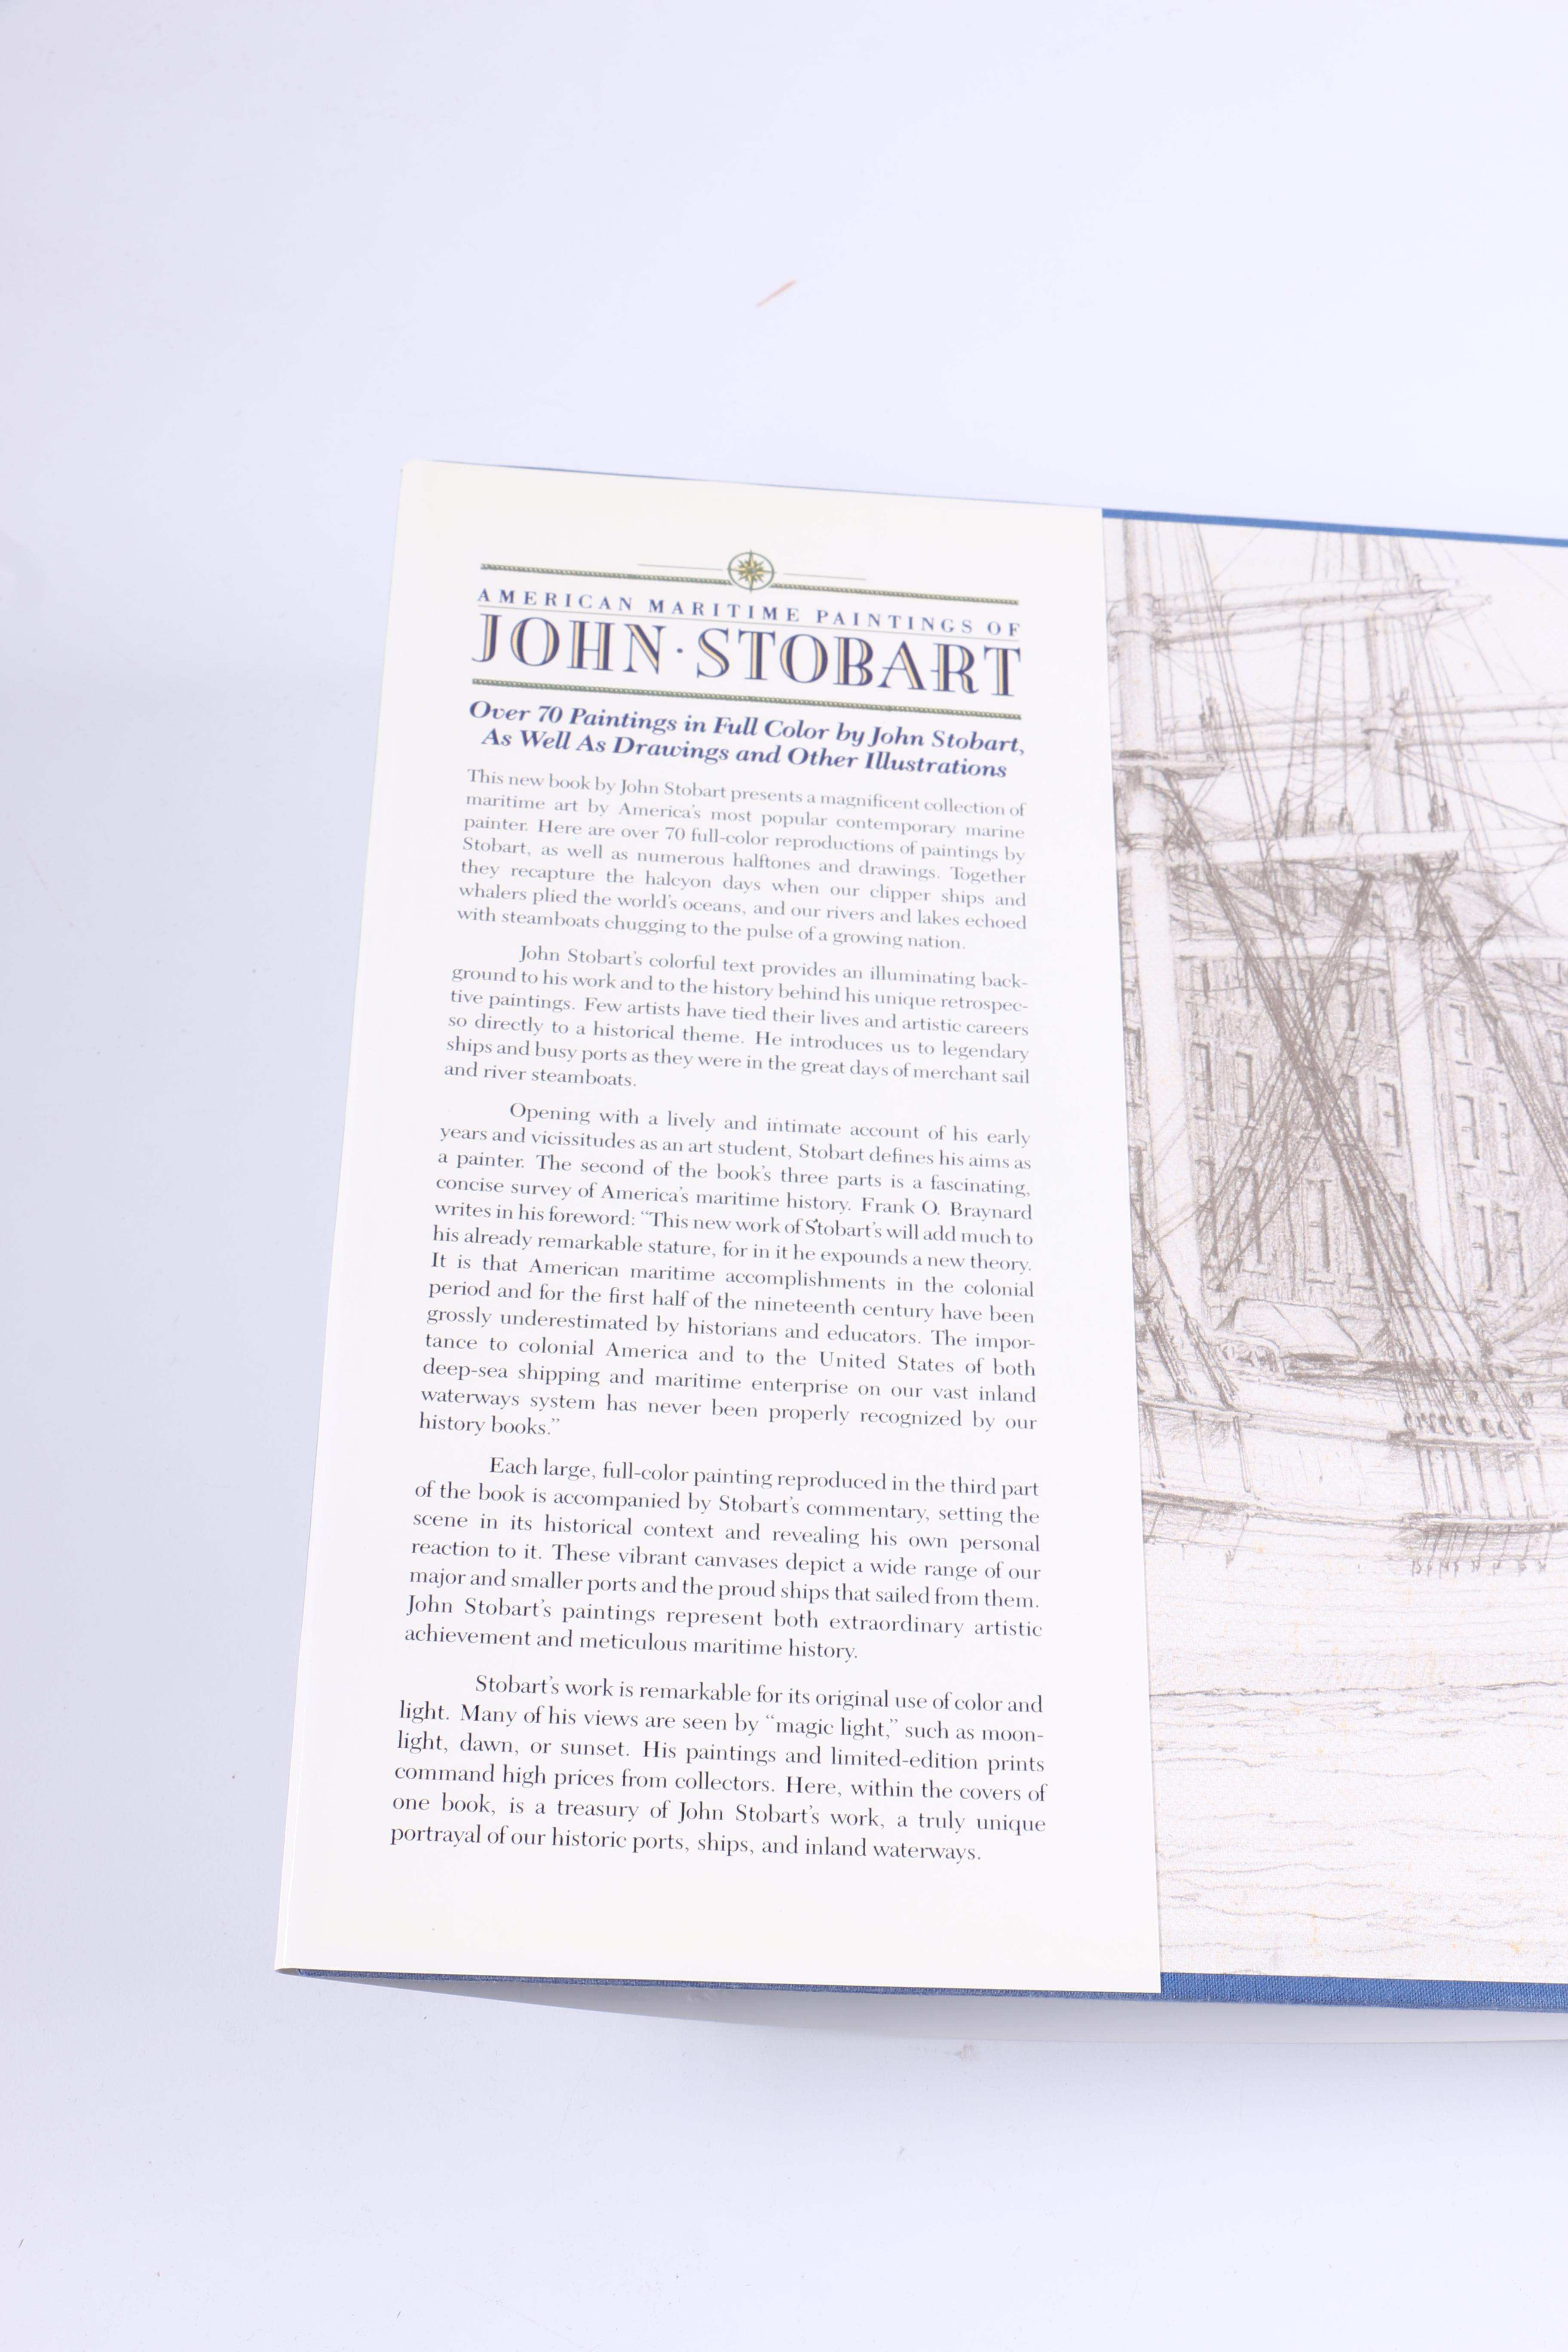 AMERICAN MARITIME PAINTINGS OF
JOHN · STOBART
Over 70 Paintings in Full Color by John Stobart,
As Well As Drawings and Other Illustrations
This new book by John Stobart presents a magnificent collection of
maritime art by America's most popular contemporary marine
painter. Here are over 70 full-color reproductions of paintings by
Stobart, as well as numerous halftones and drawings. Together
they recapture the halcyon days when our clipper ships and
whalers plied the world's oceans, and our rivers and lakes echoed
with steamboats chugging to the pulse of a growing nation.
John Stobart's colorful text provides an illuminating back-
ground to his work and to the history behind his unique retrospec-
tive paintings. Few artists have tied their lives and artistic careers
so directly to a historical theme. He introduces us to legendary
ships and busy ports as they were in the great days of merchant sail
and river steamboats.
Opening with a lively and intimate account of his early
years and vicissitudes as an art student, Stobart defines his aims as
a painter. The second of the book's three parts is a fascinating,
concise survey of America's maritime history. Frank O. Braynard
writes in his foreword: “This new work of Stobart's will add much to
his already remarkable stature, for in it he expounds a new theory.
It is that American maritime accomplishments in the colonial
period and for the first half of the nineteenth century have been
grossly underestimated by historians and educators. The impor-
tance to colonial America and to the United States of both
deep-sea shipping and maritime enterprise on our vast inland
waterways system has never been properly recognized by our
history books.”
Each large, full-color painting reproduced in the third part
of the book is accompanied by Stobart's commentary, setting the
scene in its historical context and revealing his own personal
reaction to it. These vibrant canvases depict a wide range of our
major and smaller ports and the proud ships that sailed from them.
John Stobart's paintings represent both extraordinary artistic
achievement and meticulous maritime history.
Stobart's work is remarkable for its original use of color and
light. Many of his views are seen by “magic light,” such as moon-
light, dawn, or sunset. His paintings and limited-edition prints
command high prices from collectors. Here, within the covers of
one book, is a treasury of John Stobart's work, a truly unique
portrayal of our historic ports, ships, and inland waterways.